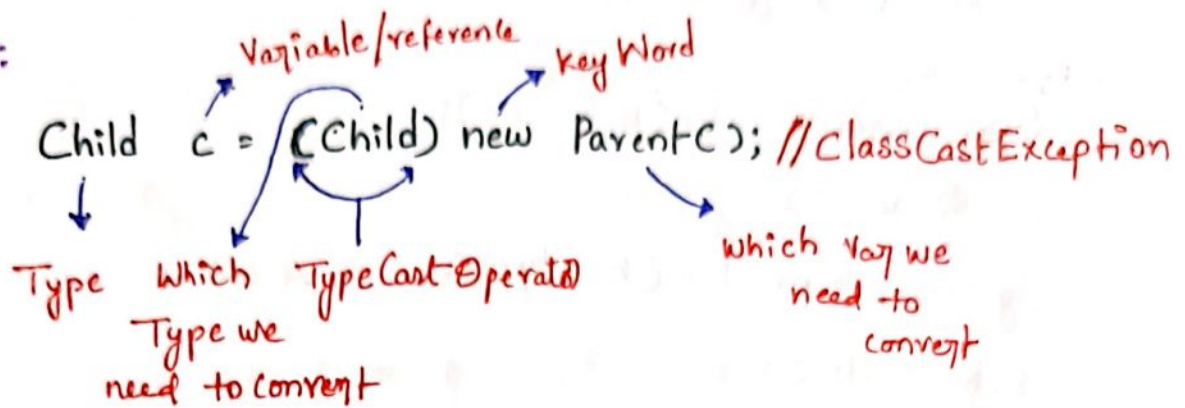 :
Variable/reference
Key Word
Child c = (Child) new Parent(); // ClassCastException
Type
Which
Type we
need to Convert
TypeCast Operator
which var we
need to
convert